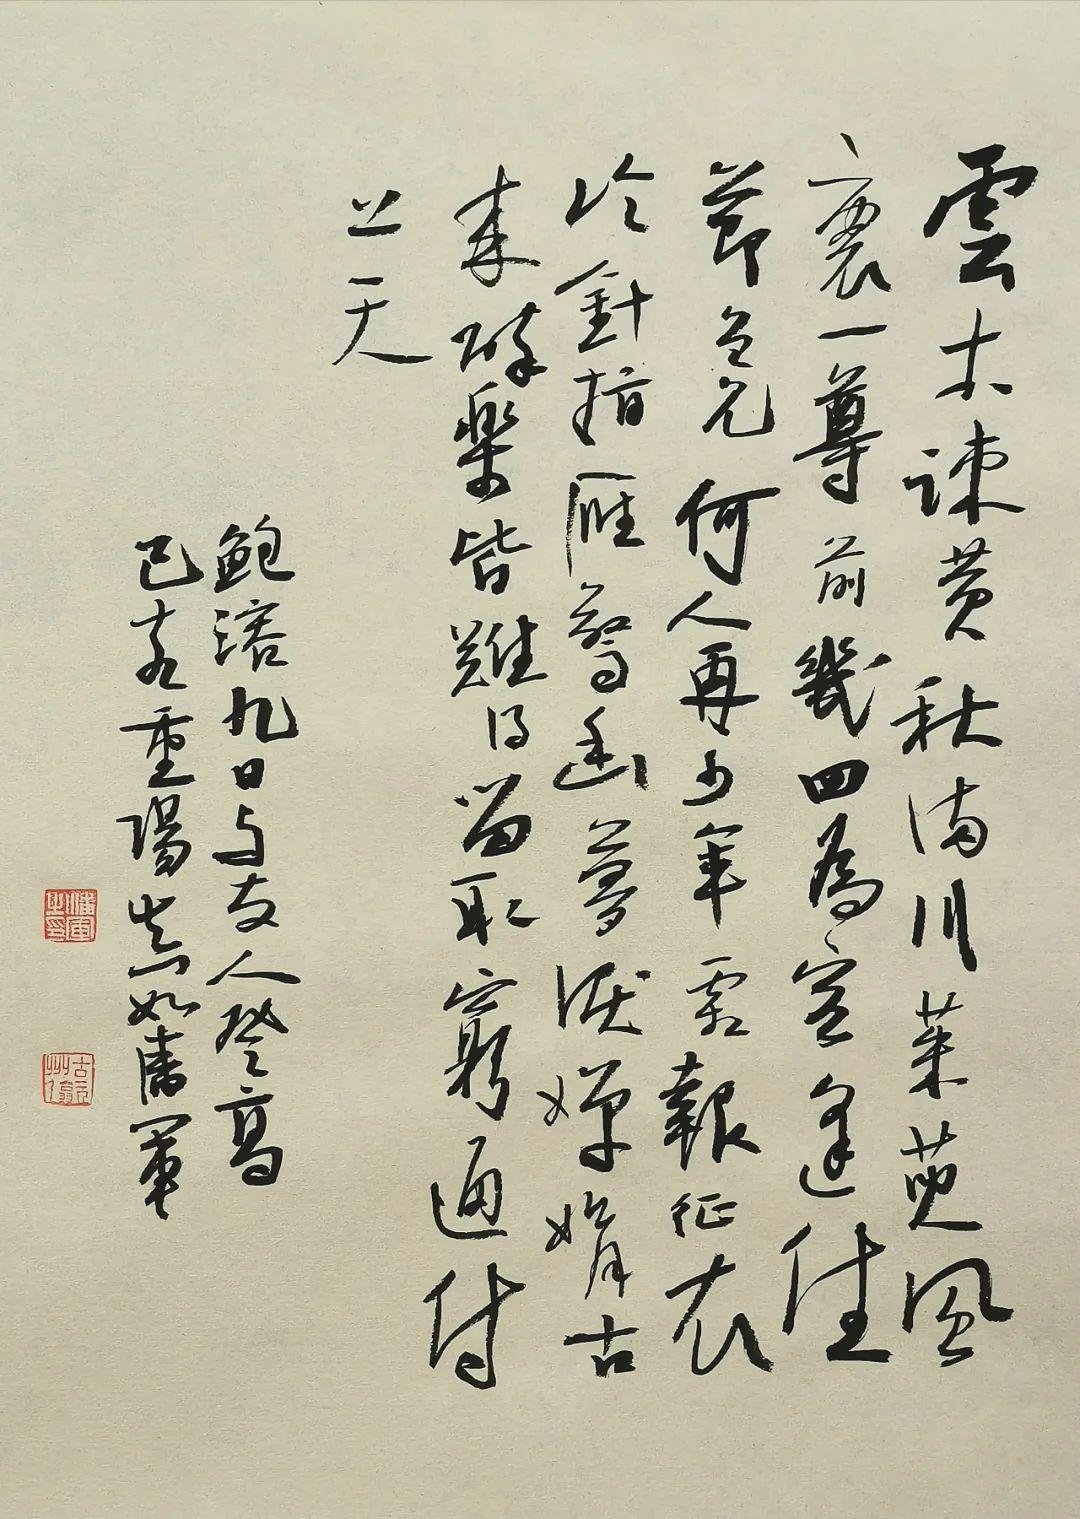 雲木疎黄秋滿川茱萸風
裏一尊前幾回為客逢佳
節曾見何人再少年霜報征衣
冷針指雁驚幽夢淚嬋娟古
來醉樂皆難得留取窮通付
上天
鮑溶九日与友人登高
己亥重陽 潘軍
潘軍之印